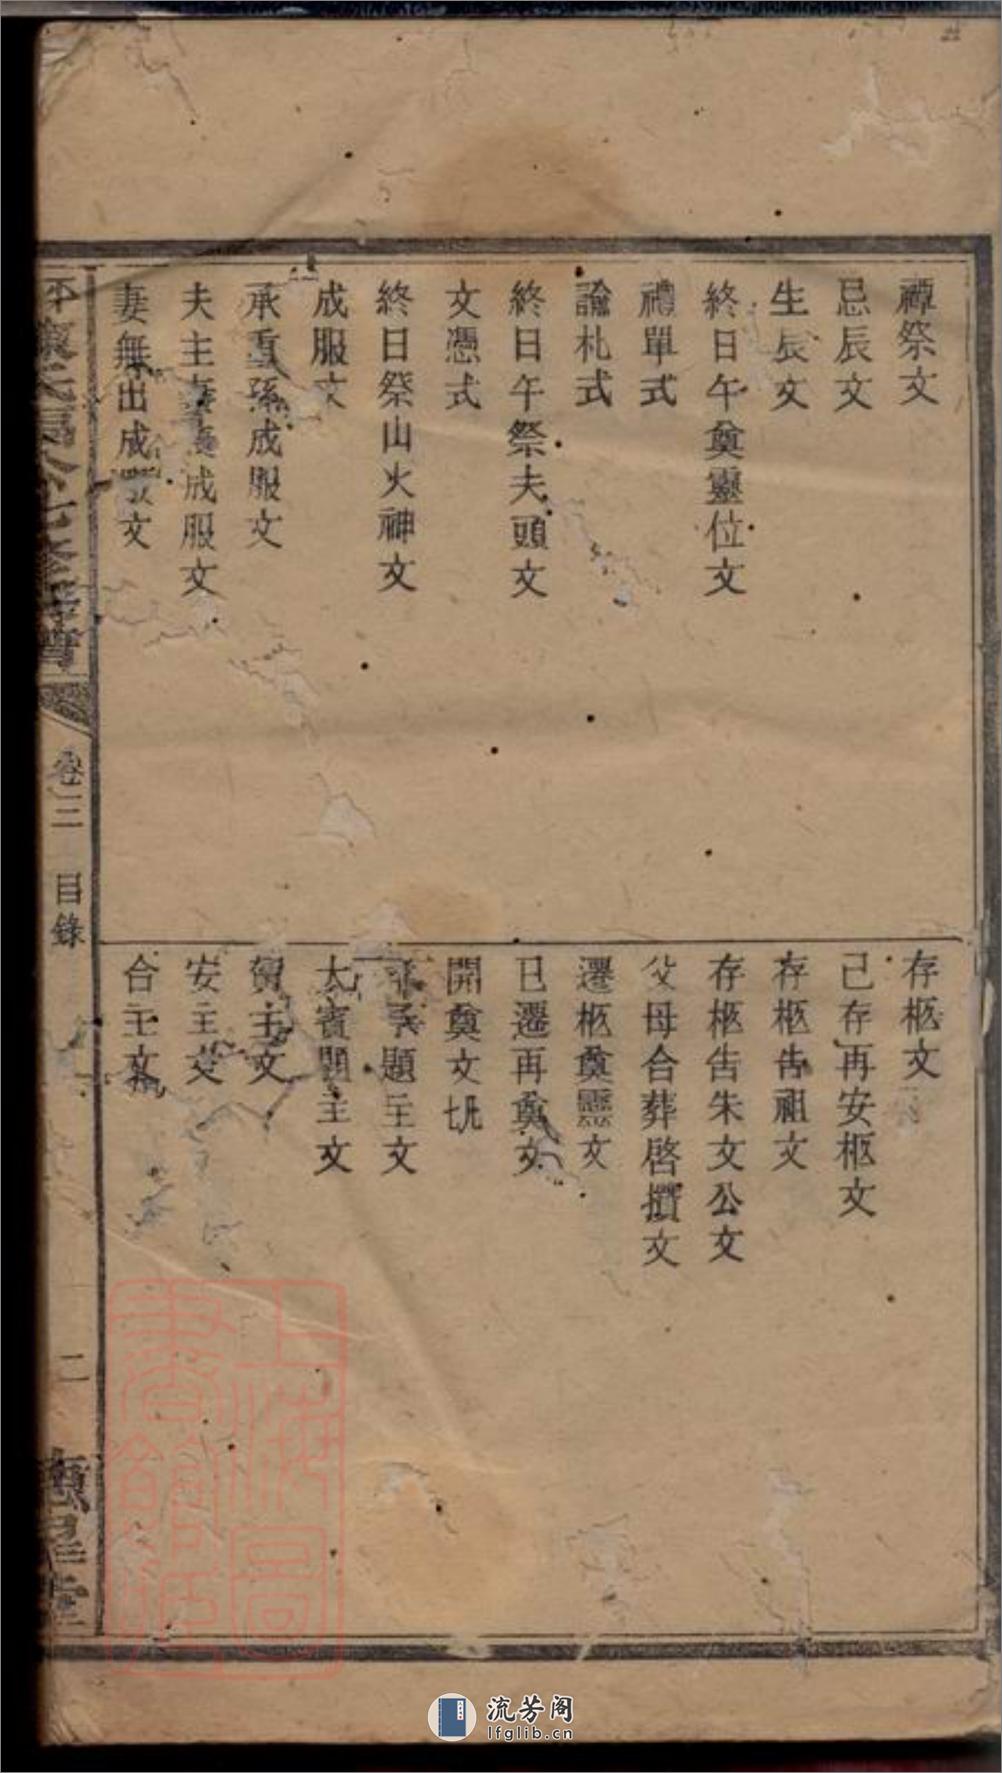 禫祭文
忌辰文
生辰文
終日午奠靈位文
禮單式
諭札式
終日午祭夫頭文
文憑式
終日祭山火神文
成服文
承重孫成服文
夫主妻成服文
妻無出成服文
存柩文
已存再安柩文
存柩告祖文
存柩告朱文公文
父母合葬啓攢文
遷柩奠靈文
已遷再奠文
開奠文
題主文
大賓題主文
賀主文
安主文
合主文
卷三 目錄
二
堂
上海圖書館藏
流芳阁
lfglib.cn